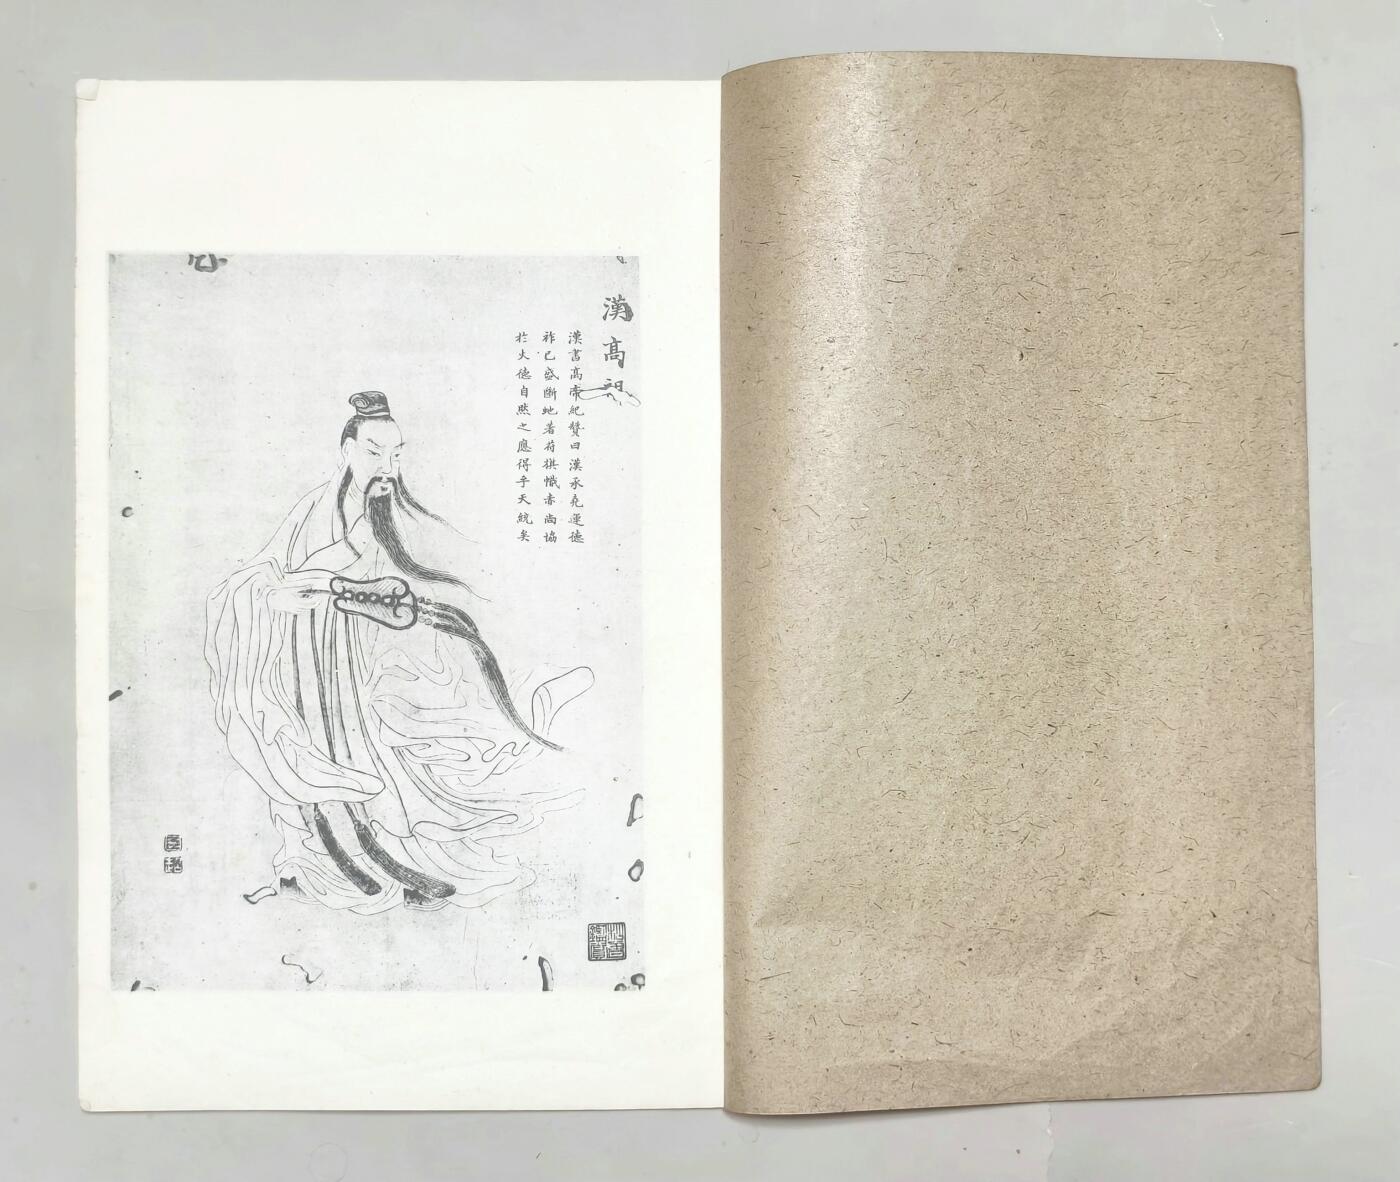 漢高祖
漢書高帝紀贊曰漢承堯運德
祚已盛斷蛇著符旗幟赤尚協
於火德自然之應得乎天統矣